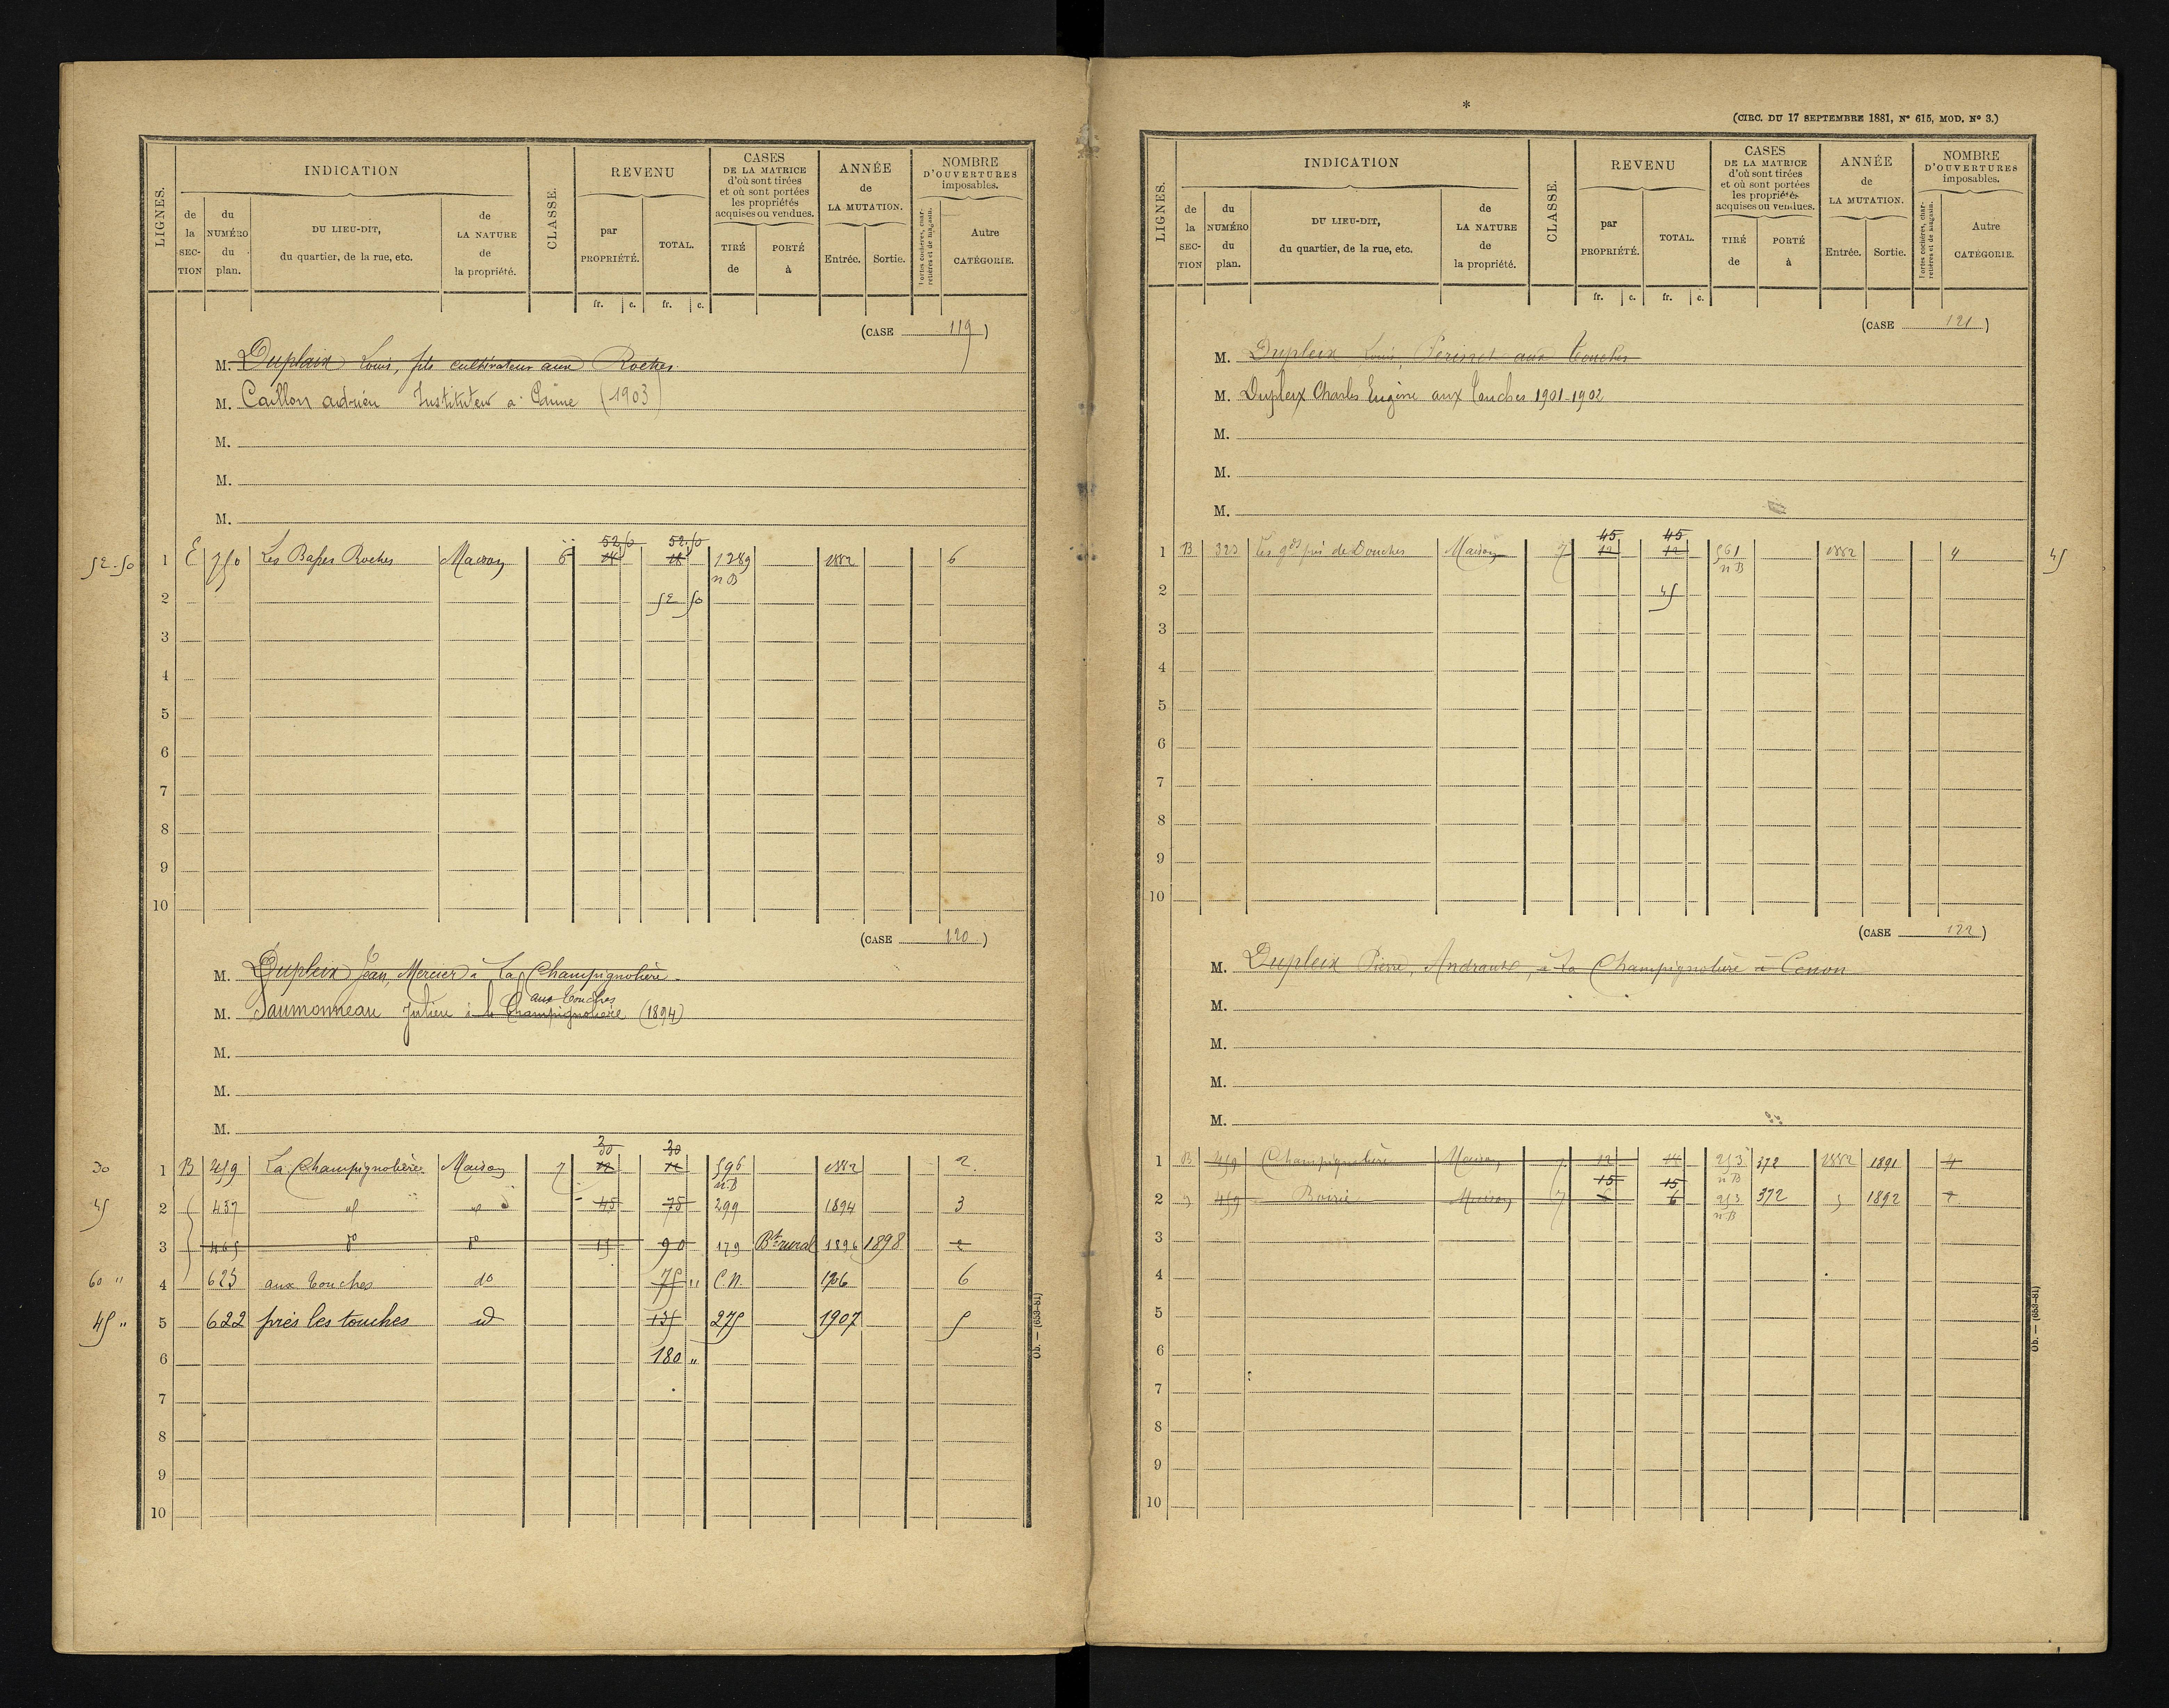 LIGNES.
INDICATION
de la SEC-TION
du NUMÉRO du plan.
DU LIEU-DIT, du quartier, de la rue, etc.
de LA NATURE de la propriété.
CLASSE.
REVENU
par PROPRIÉTÉ.
TOTAL.
fr. c. fr. c.
CASES DE LA MATRICE d'où sont tirées et où sont portées les propriétés acquises ou vendues.
TIRÉ de
PORTÉ à
ANNÉE de LA MUTATION.
Entrée. Sortie.
NOMBRE D'OUVERTURES imposables.
Portes cochères, charretières et de magasin.
Autre CATÉGORIE.
(CASE 119)
M. Duplaix Louis, fils cultivateur aux Roches
M. Caillon adrien Instituteur a (1903)
M.
M.
M.
52.50 52.50
52-50 1 E 750 Les Basses Roches Maison 6 1289 1882 6
n B
2 52 50
3
4
5
6
7
8
9
10
(CASE 120)
M. Dupleix Jean, Mercier à La Champignolière
aux Touches
M. Saumonneau Julien à la Champignolière (1894)
M.
M.
M.
30 30
30 1 B 459 La Champignolière Maison 7 12 12 596 1882 2
n B
45 2 457 d 45 75 299 1894 3
3 465 do do 15 90 179 Bt rural 1896 1898 2
60 " 4 623 aux Touches do 75 " C.N. 1906 6
45 " 5 622 près les touches id 135 275 1907 5
6 180 "
7
8
9
10
Ob. — (653-81)
*
(CIRC. DU 17 SEPTEMBRE 1881, N° 615, MOD. N° 3.)
LIGNES.
INDICATION
de la SEC-TION
du NUMÉRO du plan.
DU LIEU-DIT, du quartier, de la rue, etc.
de LA NATURE de la propriété.
CLASSE.
REVENU
par PROPRIÉTÉ.
TOTAL.
fr. c. fr. c.
CASES DE LA MATRICE d'où sont tirées et où sont portées les propriétés acquises ou vendues.
TIRÉ de
PORTÉ à
ANNÉE de LA MUTATION.
Entrée. Sortie.
NOMBRE D'OUVERTURES imposables.
Portes cochères, charretières et de magasin.
Autre CATÉGORIE.
(CASE 121)
M. Dupleix Louis, Perinet aux Touches
M. Dupleix Charles Eugène aux Touches 1901-1902
M.
M.
M.
45 45
1 B 323 Les gds prés de Douches Maison 7 12 12 561 1882 4 45
n B
2 45
3
4
5
6
7
8
9
10
(CASE 122)
M. Dupleix Pierre, Andrault, à La Champignolière à Cenon
M.
M.
M.
M.
1 B 459 Champignolière Maison 7 12 253 372 1882 1891 4
15 15 n B
2 459 Maison 7 6 253 372 1892 2
n B
3
4
5
6
7
8
9
10
Ob. — (653-81)